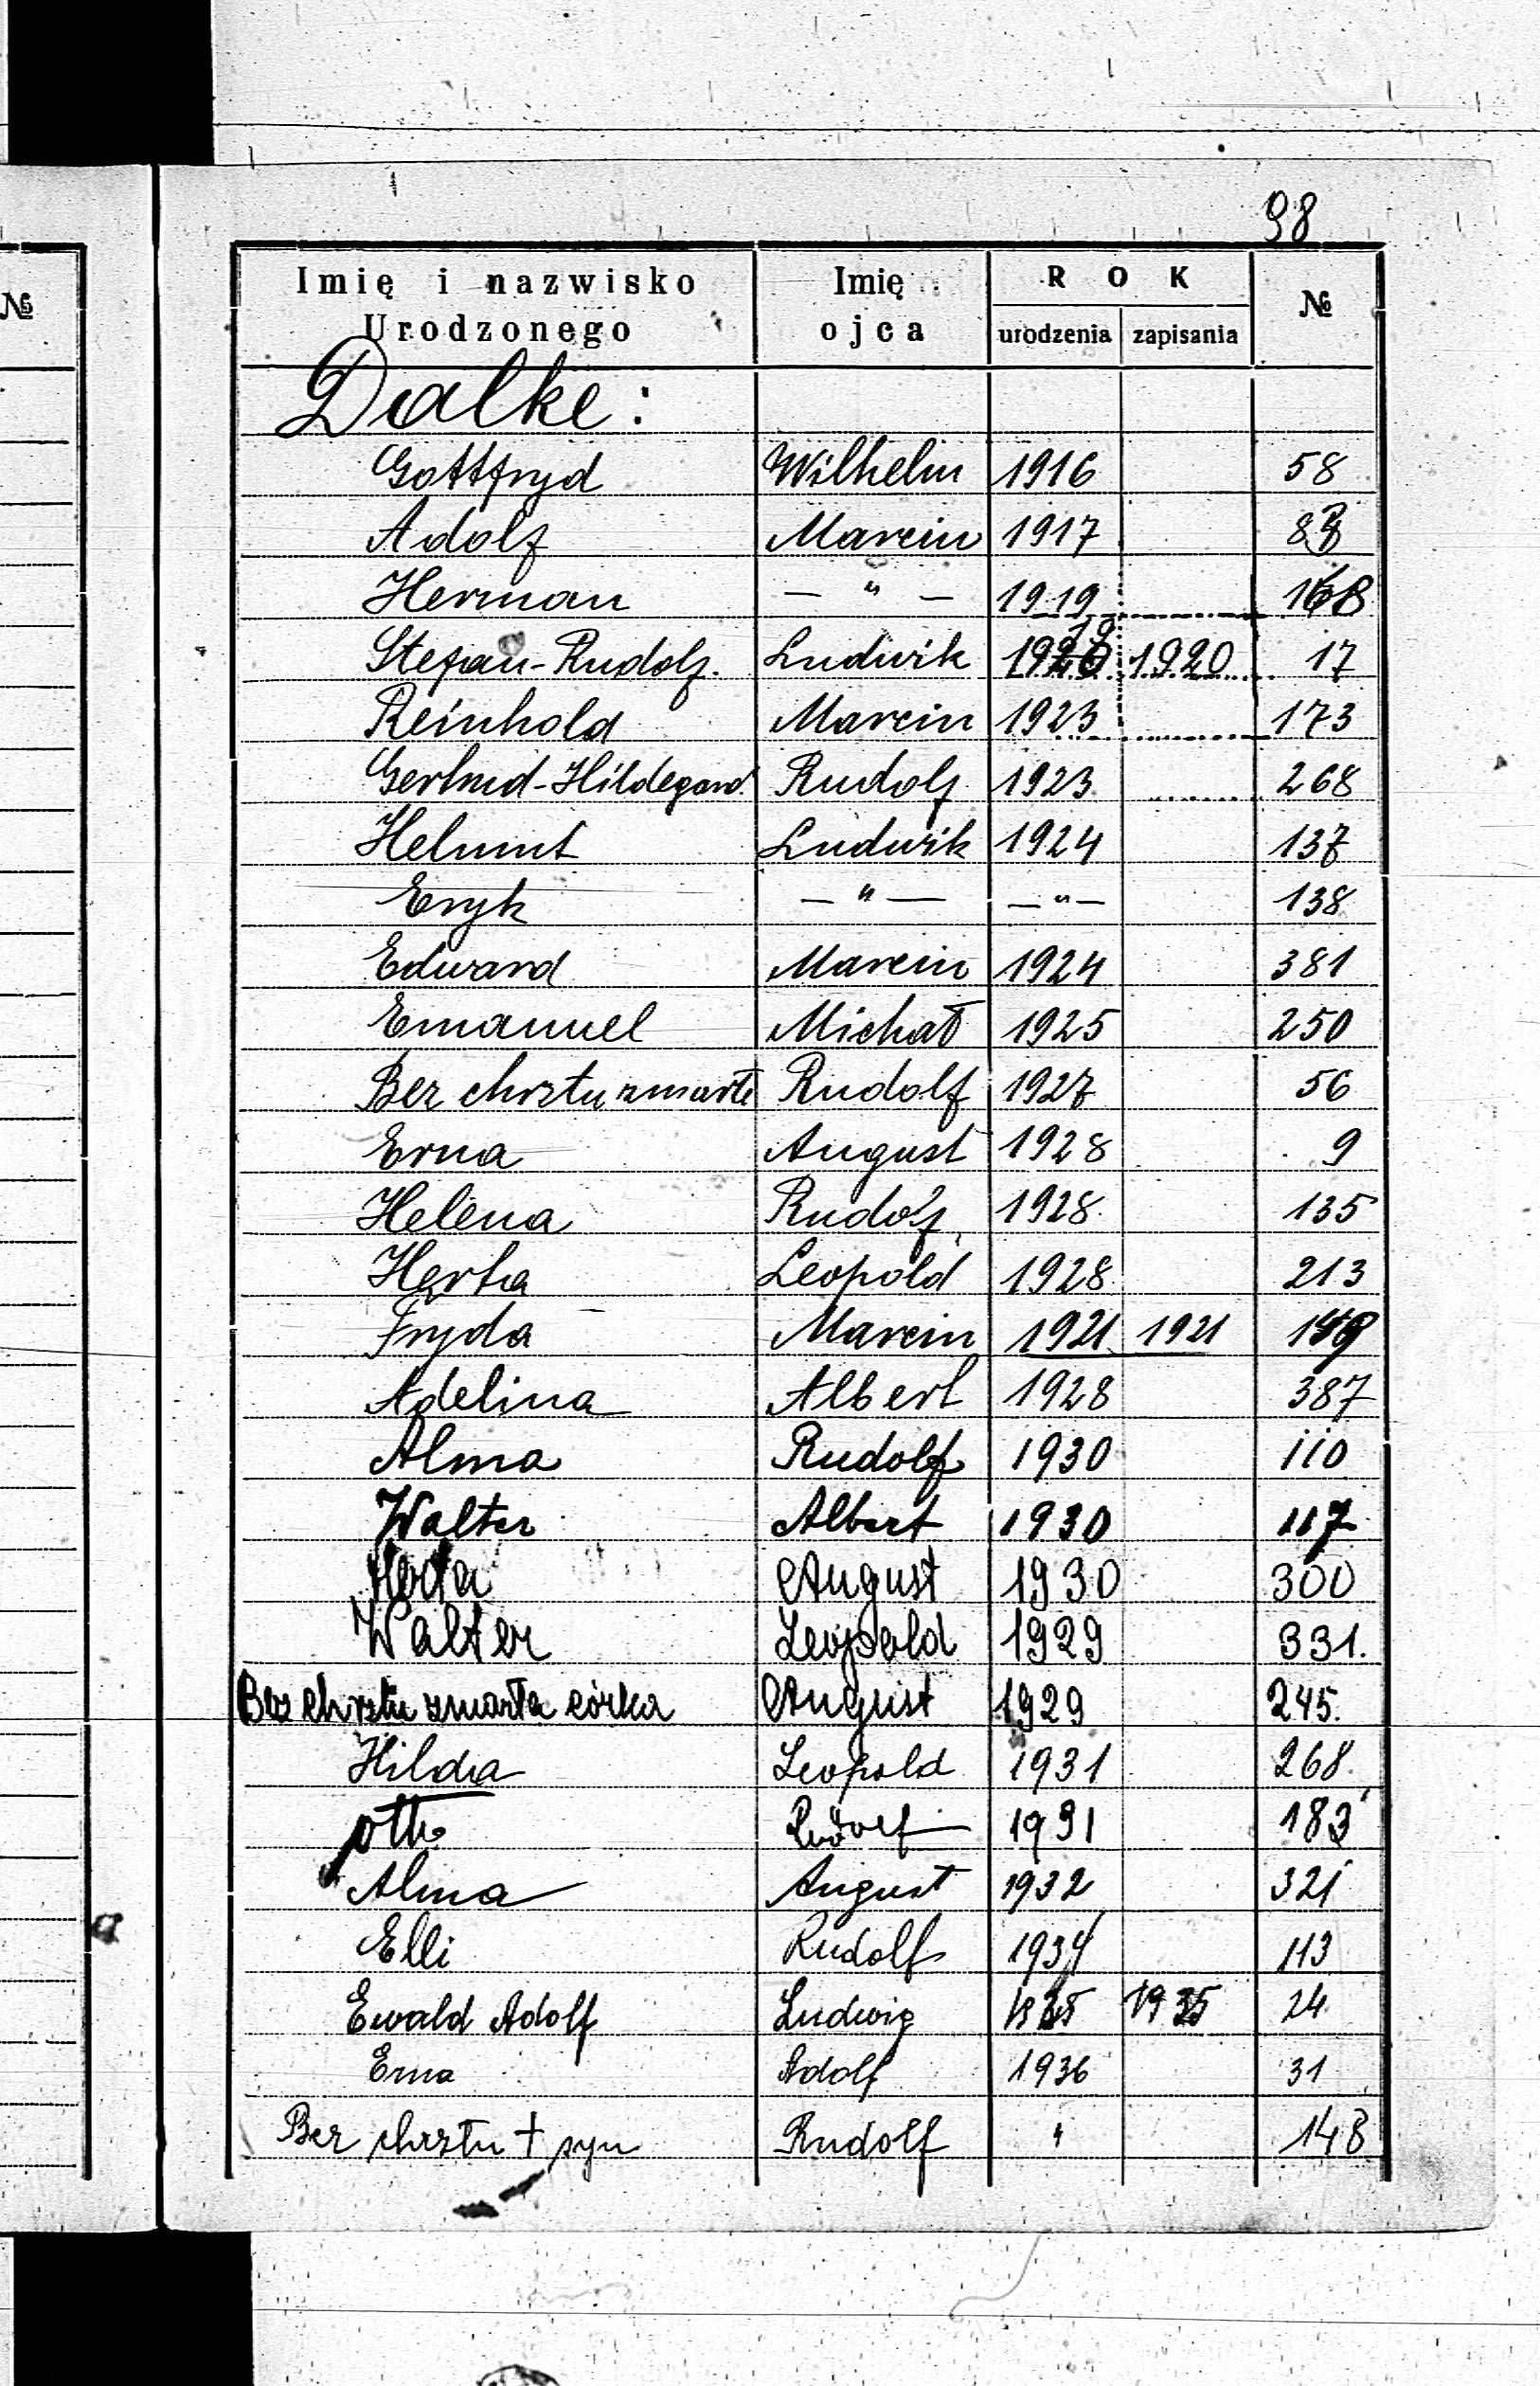 98
№
Imię i nazwisko Urodzonego Imię ojca ROK urodzenia zapisania №
Dalke:
Gottfryd Wilhelm 1916 58
Adolf Marcin 1917
Herman — " — 1919 168
Stefan-Rudolf. Ludwik 1919 1920 17
Reinhold Marcin 1923 173
Gertrud-Hildegard. Rudolf 1923 268
Helmut Ludwik 1924 137
Eryk — " — — " — 138
Edward Marcin 1924 381
Emanuel Michał 1925 250
Bez chrztu zmarłe Rudolf 1927 56
Erna August 1928 9
Helena Rudolf 1928 135
Herta Leopold 1928 213
Fryda Marcin 1921 1921
Adelina Albert 1928 387
Alma Rudolf 1930 110
Walter Albert 1930 117
August 1930 300
Walter Leopold 1929 331.
Bez chrztu zmarła córka August 1929 245.
Hilda Leopold 1931 268
Rudolf 1931 183
Alma August 1932 321
Elli Rudolf 1934 113
Ewald Adolf Ludwig 1935 1935 24
Erna Adolf 1936 31
Bez chrztu + syn Rudolf " 148